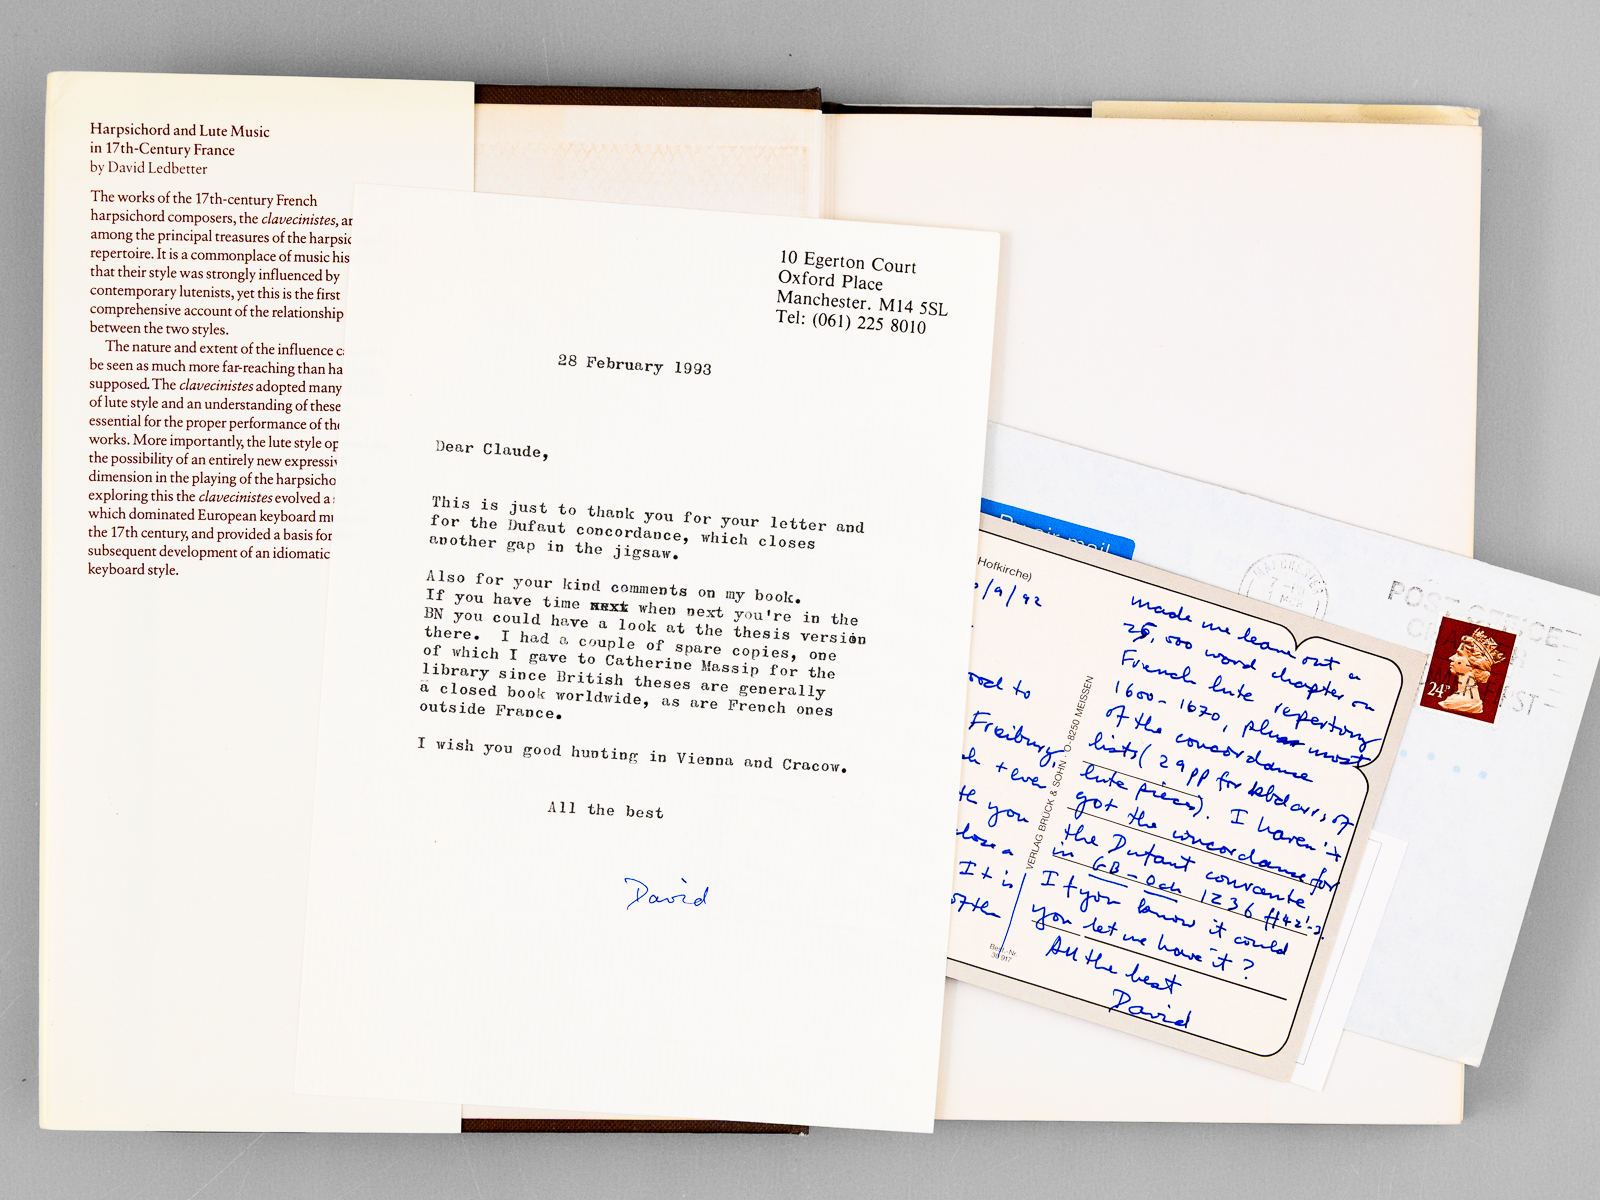 Harpsichord and Lute Music
in 17th-Century France
by David Ledbetter
The works of the 17th-century French
harpsichord composers, the clavecinistes, ar
among the principal treasures of the harpsic
repertoire. It is a commonplace of music his
that their style was strongly influenced by
contemporary lutenists, yet this is the first
comprehensive account of the relationship
between the two styles.
The nature and extent of the influence c
be seen as much more far-reaching than ha
supposed. The clavecinistes adopted many
of lute style and an understanding of these
essential for the proper performance of the
works. More importantly, the lute style op
the possibility of an entirely new expressiv
dimension in the playing of the harpsicho
exploring this the clavecinistes evolved a
which dominated European keyboard mu
the 17th century, and provided a basis for
subsequent development of an idiomatic
keyboard style.
10 Egerton Court
Oxford Place
Manchester. M14 5SL
Tel: (061) 225 8010
28 February 1993
Dear Claude,
This is just to thank you for your letter and
for the Dufaut concordance, which closes
another gap in the jigsaw.
Also for your kind comments on my book.
If you have time when next you're in the
BN you could have a look at the thesis version
there. I had a couple of spare copies, one
of which I gave to Catherine Massip for the
library since British theses are generally
a closed book worldwide, as are French ones
outside France.
I wish you good hunting in Vienna and Cracow.
All the best
David
Hofkirche)
/9/92
ood to
Freiburg,
+ ever
th you
close a
It is
of the
VERLAG BRÜCK & SOHN · O-8250 MEISSEN
Best.-Nr.
made me leave out a
25,000 word chapter on
French lute repertory
1600-1670, plus most
of the concordance
lists (29pp for kbd arrs. of
lute pieces). I haven't
got the concordance for
the Dufaut courante
in GB-Och 1236 ff42'-3.
If you know it could
you let me have it?
All the best
David
air mail
POST OFFICE
24P